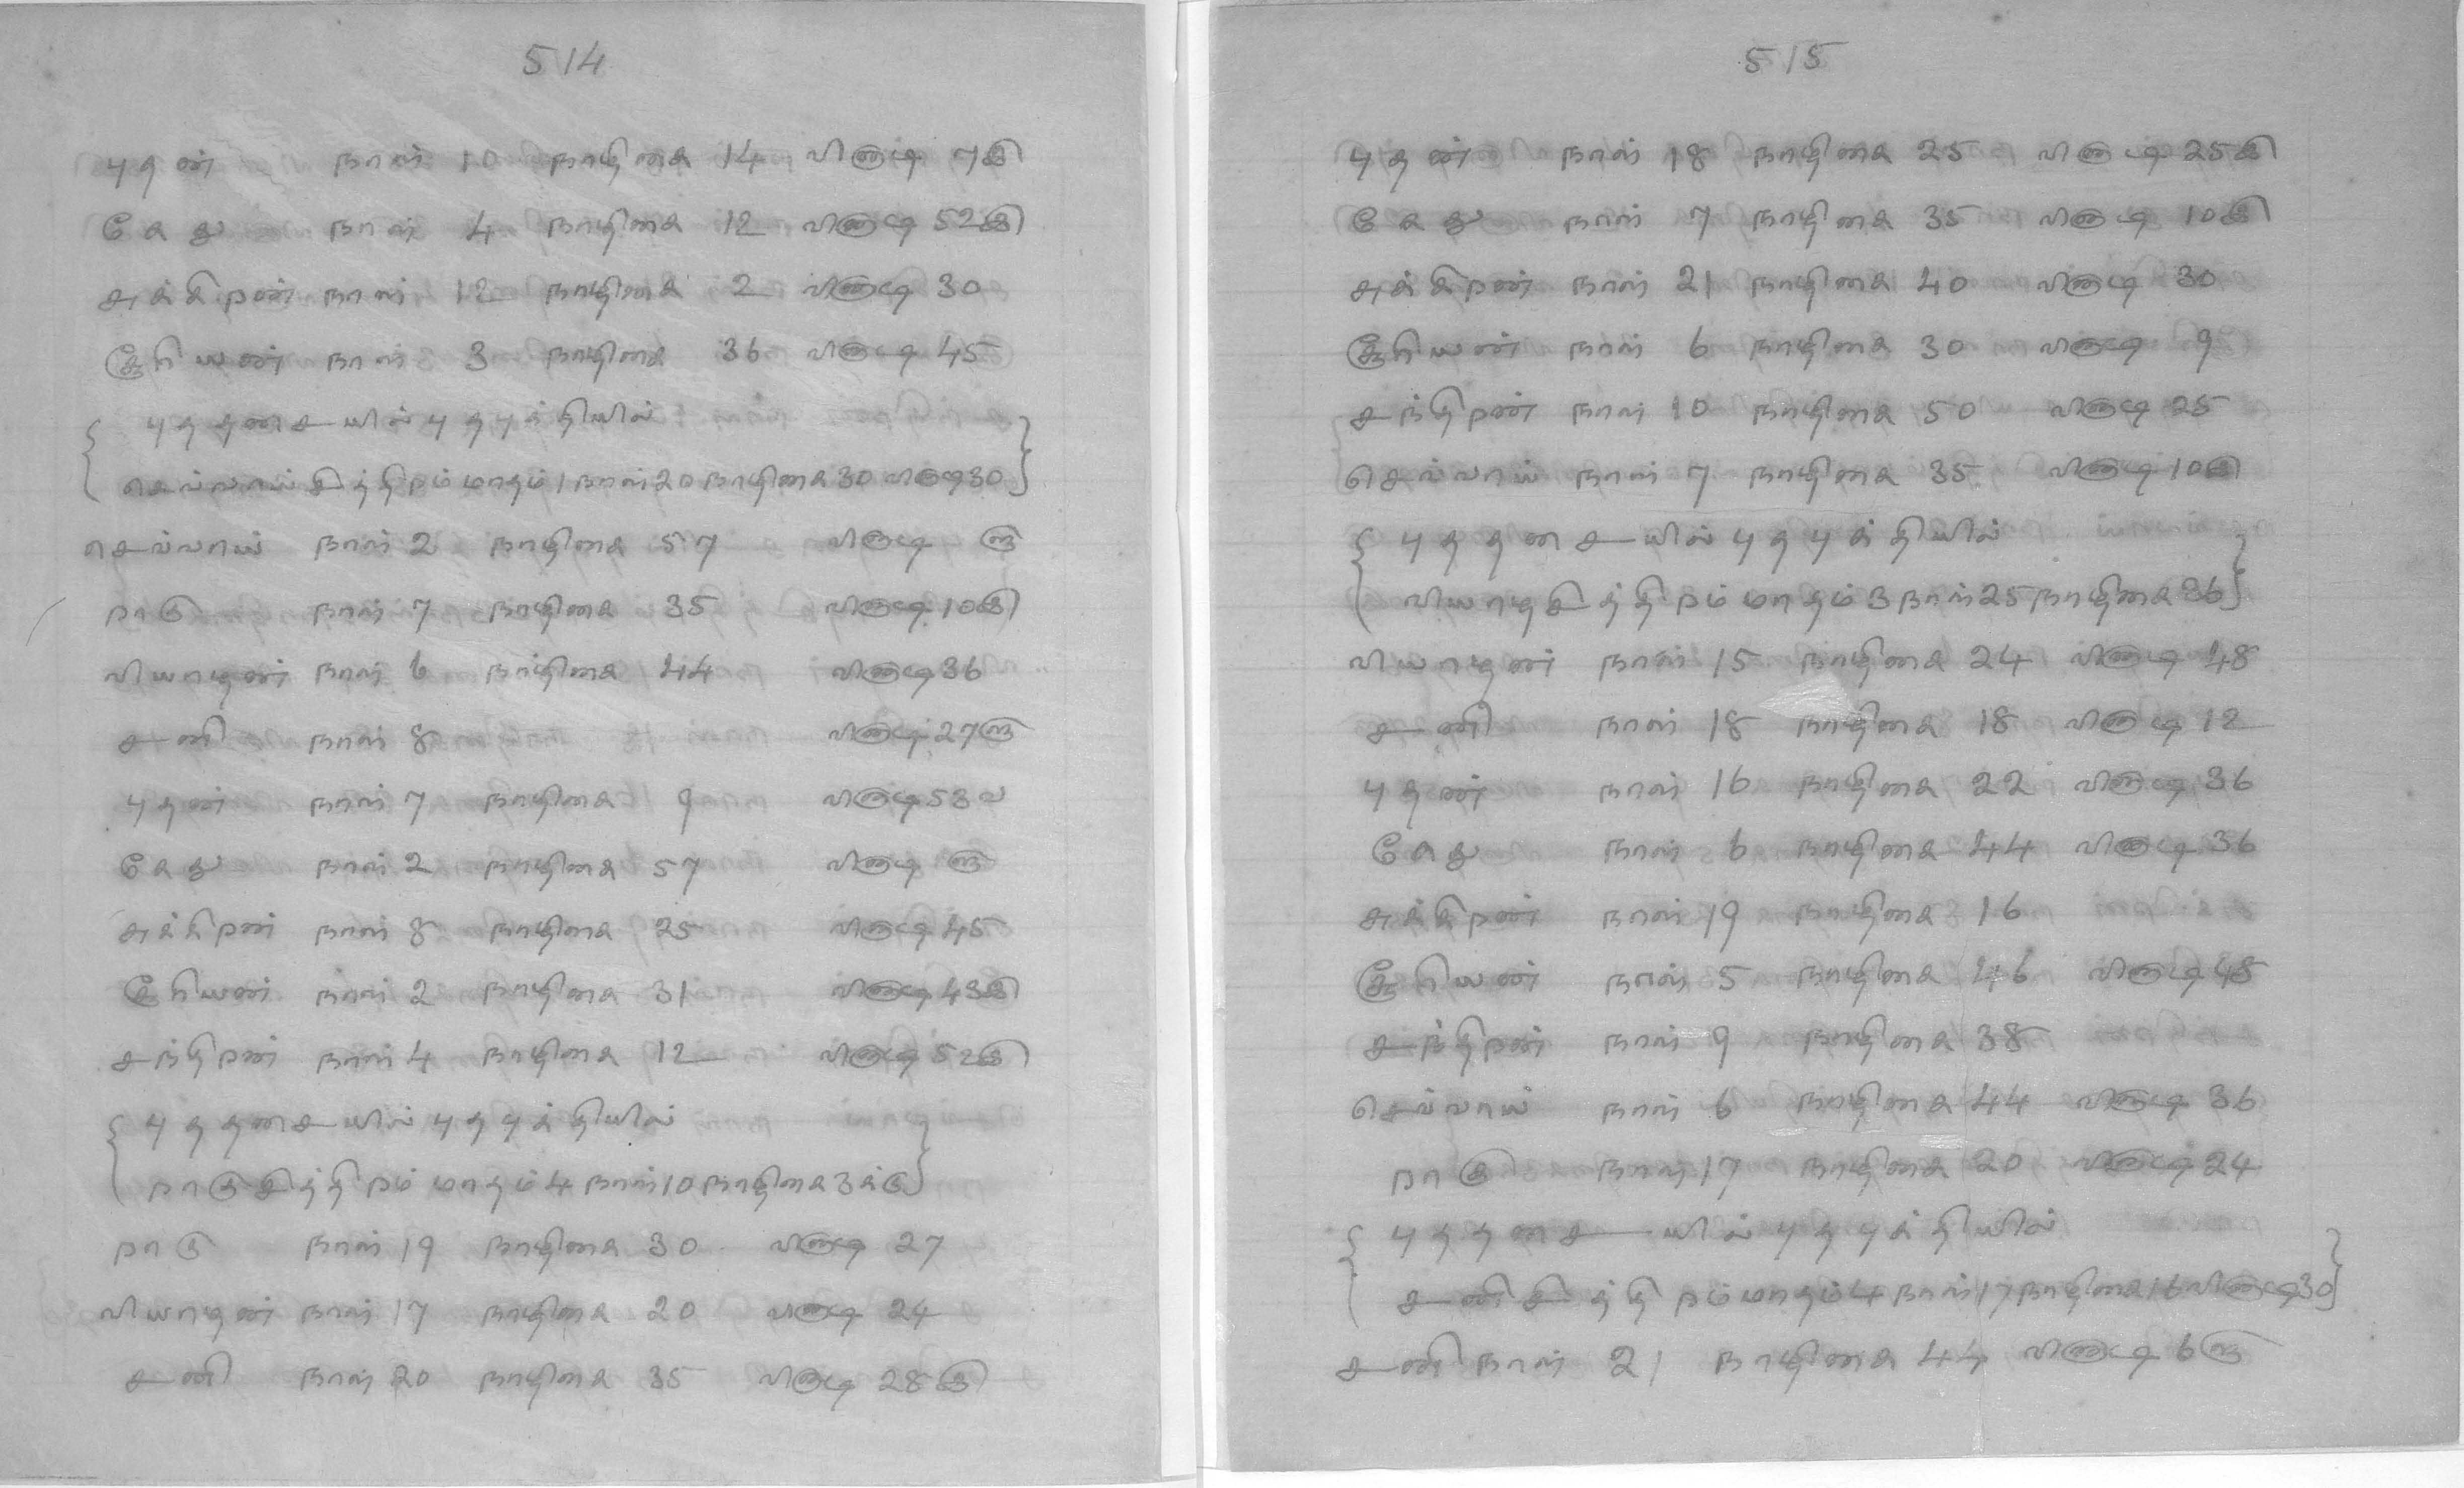 514
புதன் நாள் 10 நாழிகை 14 வினாடி 7இ
கேது நாள் 4 நாழிகை 12 வினாடி 52இ
சுக்கிறன் நாள் 12 நாழிகை 2 வினாடி 30
சூரியன் நாள் 3 நாழிகை 36 வினாடி 45
புததசையில் புதபுக்தியில்
செவ்வாய்சித்திறம் மாதம் 1 நாள் 20 நாழிகை 30 வினாடி 30
செவ்வாய் நாள் 2 நாழிகை 57 வினாடி
றாகு நாள் 7 நாழிகை 35 வினாடி 10இ
வியாழன் நாள் 6 நாழிகை 44 வினாடி 36
சனி நாள் 8 வினாடி 27
புதன் நாள் 7 நாழிகை 9 வினாடி 53
கேது நாள் 2 நாழிகை 57 வினாடி
சுக்கிறன் நாள் 8 நாழிகை 25 வினாடி 45
சூரியன் நாள் 2 நாழிகை 31 வினாடி 43இ
சந்திறன் நாள் 4 நாழிகை 12 வினாடி 52இ
புததசையில் புதபுக்தியில்
றாகுசித்திறம் மாதம் 4 நாள் 10 நாழிகை 3
றாகு நாள் 19 நாழிகை 30 வினாடி 27
வியாழன் நாள் 17 நாழிகை 20 வினாடி 24
சனி நாள் 20 நாழிகை 35 வினாடி 28இ
515
புதன் நாள் 18 நாழிகை 25 வினாடி 25இ
கேது நாள் 7 நாழிகை 35 வினாடி 10இ
சுக்கிறன் நாள் 21 நாழிகை 40 வினாடி 30
சூரியன் நாள் 6 நாழிகை 30 வினாடி 9
சந்திறன் நாள் 10 நாழிகை 50 வினாடி 25
செவ்வாய் நாள் 7 நாழிகை 35 வினாடி 10இ
புததசையில் புதபுக்தியில்
வியாழசித்திறம் மாதம் 3 நாள் 25 நாழிகை 36
வியாழன் நாள் 15 நாழிகை 24 வினாடி 48
சனி நாள் 18 நாழிகை 18 வினாடி 12
புதன் நாள் 16 நாழிகை 22 வினாடி 36
கேது நாள் 6 நாழிகை 44 வினாடி 36
சுக்கிறன் நாள் 19 நாழிகை 16
சூரியன் நாள் 5 நாழிகை 46 வினாடி 48
சந்திறன் நாள் 9 நாழிகை 38
செவ்வாய் நாள் 6 நாழிகை 44 வினாடி 36
றாகு நாள் 17 நாழிகை 20 வினாடி 24
புததசையில் புதபுக்தியில்
சனிசித்திறம் மாதம் 4 நாள் 17 நாழிகை 16 வினாடி 30
சனி நாள் 21 நாழிகை 44 வினாடி 6